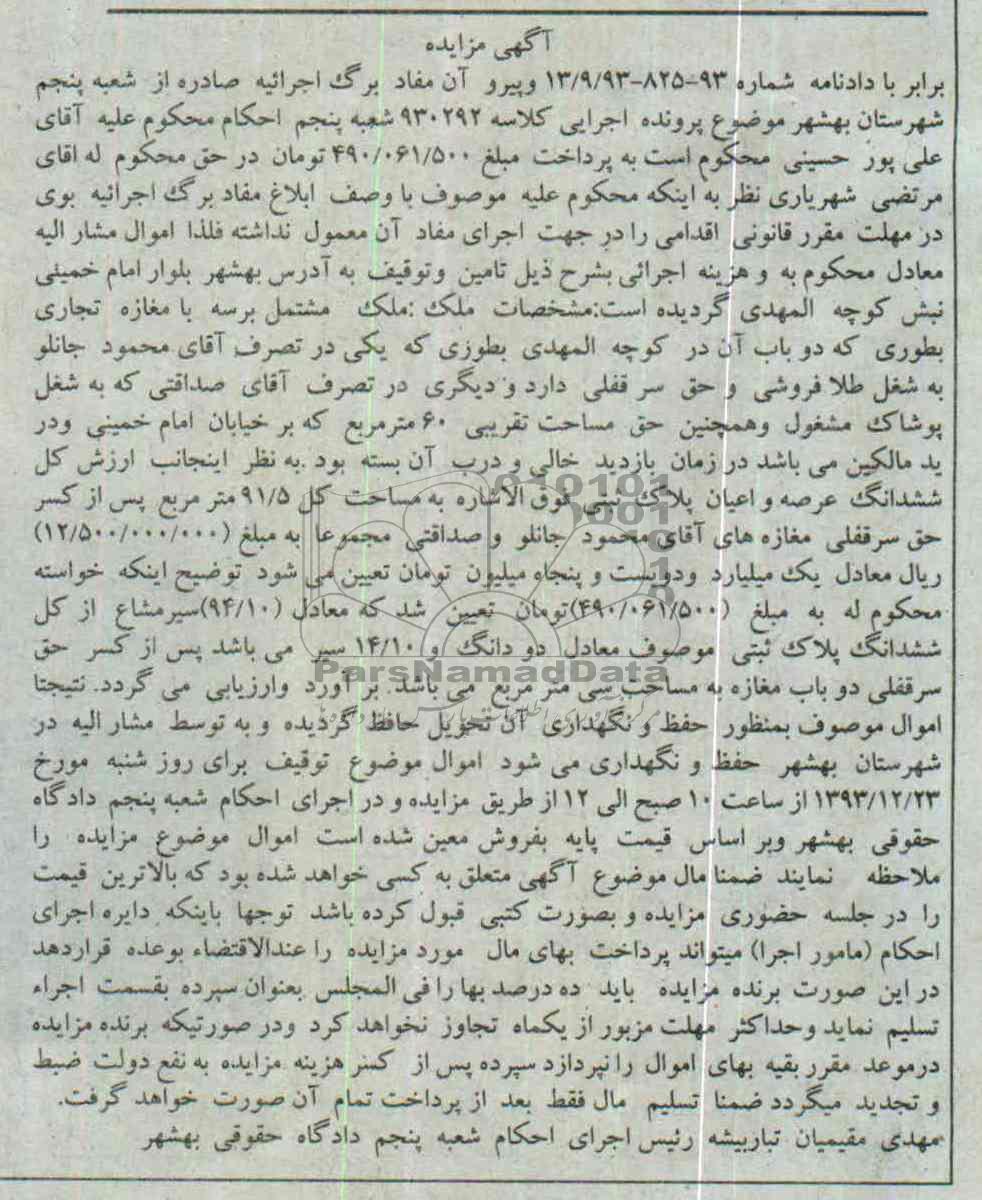 آگهی مزایده
برابر با دادنامه شماره ۹۳-۸۲۵-۱۳/۹/۹۳ وپیرو آن مفاد برگ اجرائیه صادره از شعبه پنجم
شهرستان بهشهر موضوع پرونده اجرایی کلاسه ۹۳۰۲۹۲ شعبه پنجم احکام محکوم علیه آقای
علی پور حسینی محکوم است به پرداخت مبلغ ۴۹۰/۰۶۱/۵۰۰ تومان در حق محکوم له اقای
مرتضی شهریاری نظر به اینکه محکوم علیه موصوف با وصف ابلاغ مفاد برگ اجرائیه بوی
در مهلت مقرر قانونی اقدامی را در جهت اجرای مفاد آن معمول نداشته فلذا اموال مشار الیه
معادل محکوم به و هزینه اجرائی بشرح ذیل تامین وتوقیف به آدرس بهشهر بلوار امام خمینی
نبش کوچه المهدی گردیده است:مشخصات ملک :ملک مشتمل برسه با مغازه تجاری
بطوری که دو باب آن در کوچه المهدی بطوزی که یکی در تصرف آقای محمود جانلو
به شغل طلا فروشی و حق سر قفلی دارد و دیگری در تصرف آقای صداقتی که به شغل
پوشاک مشغول وهمچنین حق مساحت تقریبی ۶۰ مترمربع که بر خیابان امام خمینی ودر
ید مالکین می باشد در زمان بازدید خالی و درب آن بسته بود .به نظر اینجانب ارزش کل
ششدانگ عرصه و اعیان پلاک ثبتی فوق الاشاره به مساحت کل ۹۱/۵ متر مربع پس از کسر
حق سرقفلی مغازه های آقای محمود جانلو و صداقتی مجموعا به مبلغ (۱۲/۵۰۰/۰۰۰/۰۰۰)
ریال معادل یک میلیارد ودویست و پنجاه میلیون تومان تعیین می شود توضیح اینکه خواسته
محکوم له به مبلغ (۴۹۰/۰۶۱/۵۰۰)تومان تعیین شد که معادل (۹۴/۱۰)سیرمشاع از کل
ششدانگ پلاک ثبتی موصوف معادل دو دانگ و ۱۴/۱۰ سیر می باشد پس از کسر حق
سرقفلی دو باب مغازه به مساحت سی متر مربع می باشد. بر آورد وارزیابی می گردد. نتیجتا
اموال موصوف بمنظور حفظ و نگهداری آن تحویل حافظ گردیده و به توسط مشار الیه در
شهرستان بهشهر حفظ و نگهداری می شود اموال موضوع توقیف برای روز شنبه مورخ
۱۳۹۳/۱۲/۲۳ از ساعت ۱۰ صبح الی ۱۲ از طریق مزایده و در اجرای احکام شعبه پنجم دادگاه
حقوقی بهشهر وبر اساس قیمت پایه بفروش معین شده است اموال موضوع مزایده را
ملاحظه نمایند ضمنا مال موضوع آگهی متعلق به کسی خواهد شده بود که بالاترین قیمت
را در جلسه حضوری مزایده و بصورت کتبی قبول کرده باشد توجها باینکه دایره اجرای
احکام (مامور اجرا) میتواند پرداخت بهای مال مورد مزایده را عندالاقتضاء بوعده قراردهد
در این صورت برنده مزایده باید ده درصد بها را فی المجلس بعنوان سپرده بقسمت اجراء
تسلیم نماید وحداکثر مهلت مزبور از یکماه تجاوز نخواهد کرد ودر صورتیکه برنده مزایده
درموعد مقرر بقیه بهای اموال را نپردازد سپرده پس از کسر هزینه مزایده به نفع دولت ضبط
و تجدید میگردد ضمنا تسلیم مال فقط بعد از پرداخت تمام آن صورت خواهد گرفت.
مهدی مقیمیان تباربیشه رئیس اجرای احکام شعبه پنجم دادگاه حقوقی بهشهر
ParsNamadData